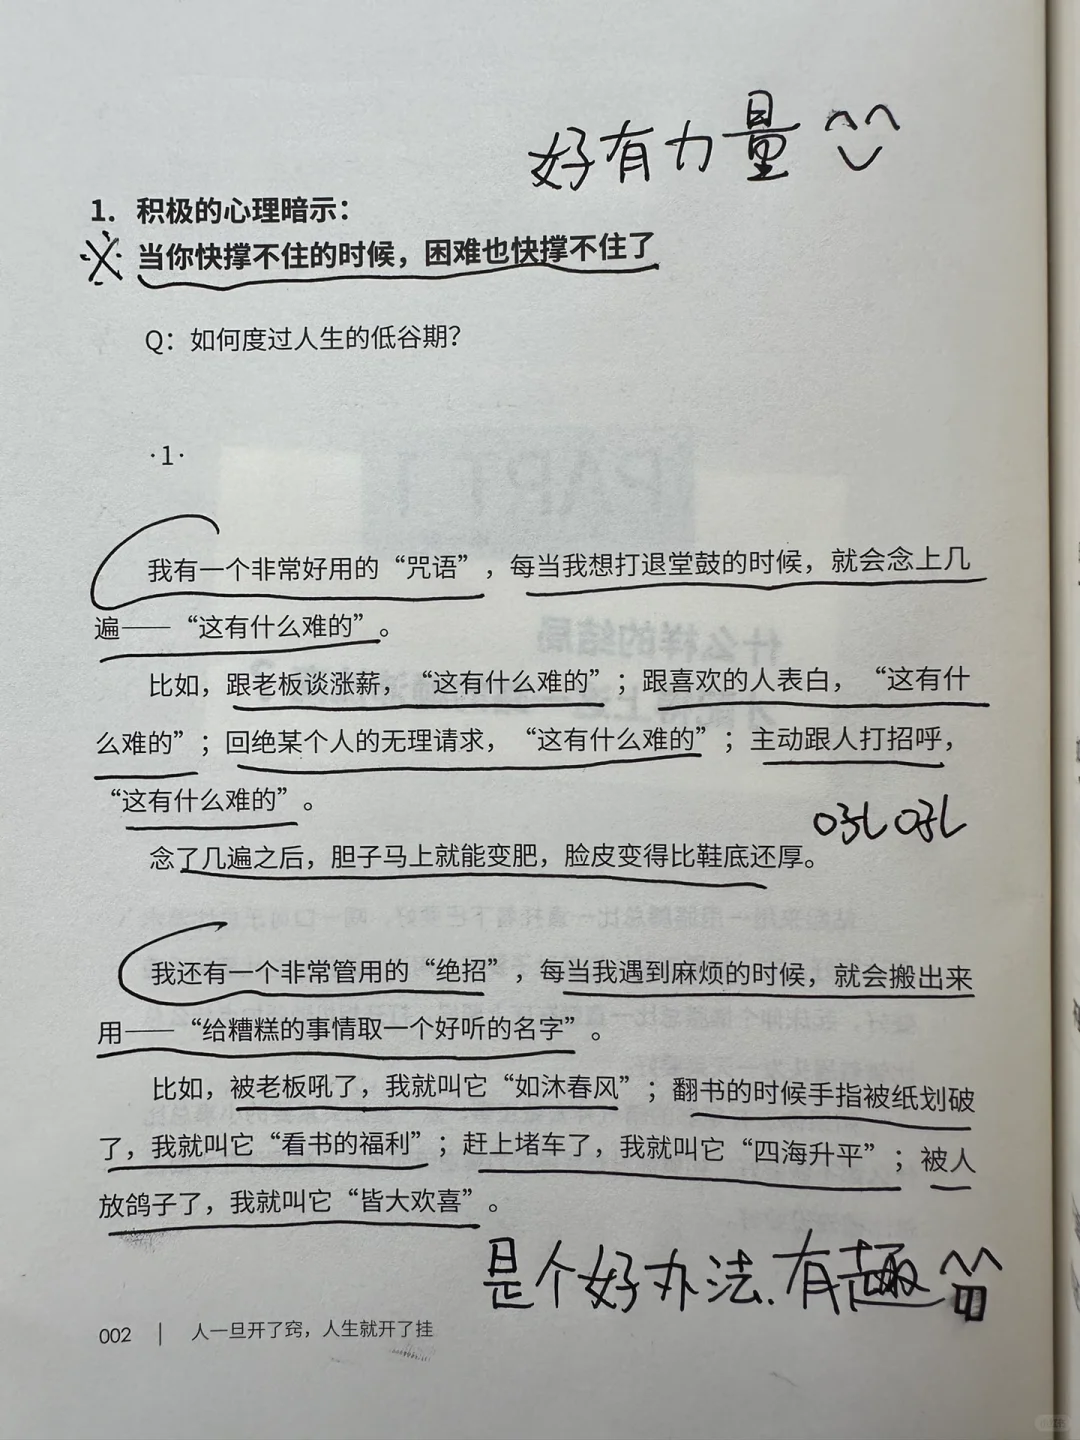 好有力量
1. 积极的心理暗示：
当你快撑不住的时候，困难也快撑不住了
Q：如何度过人生的低谷期？
·1·
我有一个非常好用的“咒语”，每当我想打退堂鼓的时候，就会念上几
遍——“这有什么难的”。
比如，跟老板谈涨薪，“这有什么难的”；跟喜欢的人表白，“这有什
么难的”；回绝某个人的无理请求，“这有什么难的”；主动跟人打招呼，
“这有什么难的”。
吼吼
念了几遍之后，胆子马上就能变肥，脸皮变得比鞋底还厚。
我还有一个非常管用的“绝招”，每当我遇到麻烦的时候，就会搬出来
用——“给糟糕的事情取一个好听的名字”。
比如，被老板吼了，我就叫它“如沐春风”；翻书的时候手指被纸划破
了，我就叫它“看书的福利”；赶上堵车了，我就叫它“四海升平”；被人
放鸽子了，我就叫它“皆大欢喜”。
是个好办法.有趣
002 | 人一旦开了窍，人生就开了挂